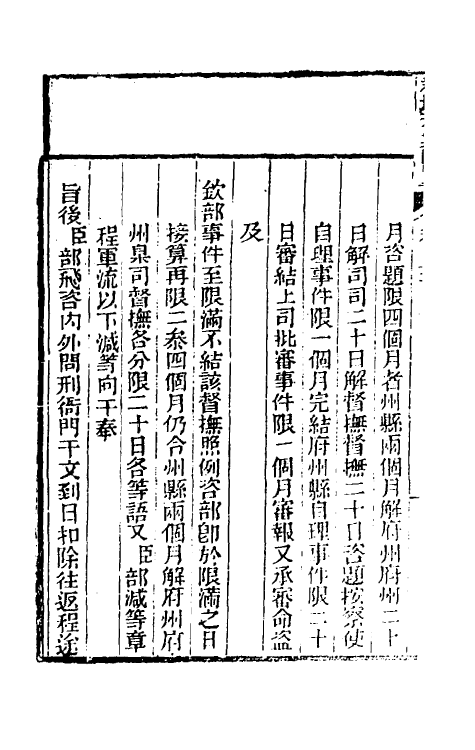 月咨題限四個月者州縣兩個月解府州府州二十
日解司司二十日解督撫督撫二十日咨題按察使
自理事件限一個月完結府州縣自理事件限二十
日審結上司批審事件限一個月審報又承審命盜
及
欽部事件至限滿不結該督撫照例咨部卽於限滿之日
接算再限二叅四個月仍令州縣兩個月解府州府
州臬司督撫各分限二十日各等語又臣部減等章
程軍流以下減等向于奉
旨後臣部飛咨內外問刑衙門于文到日扣除往返程途